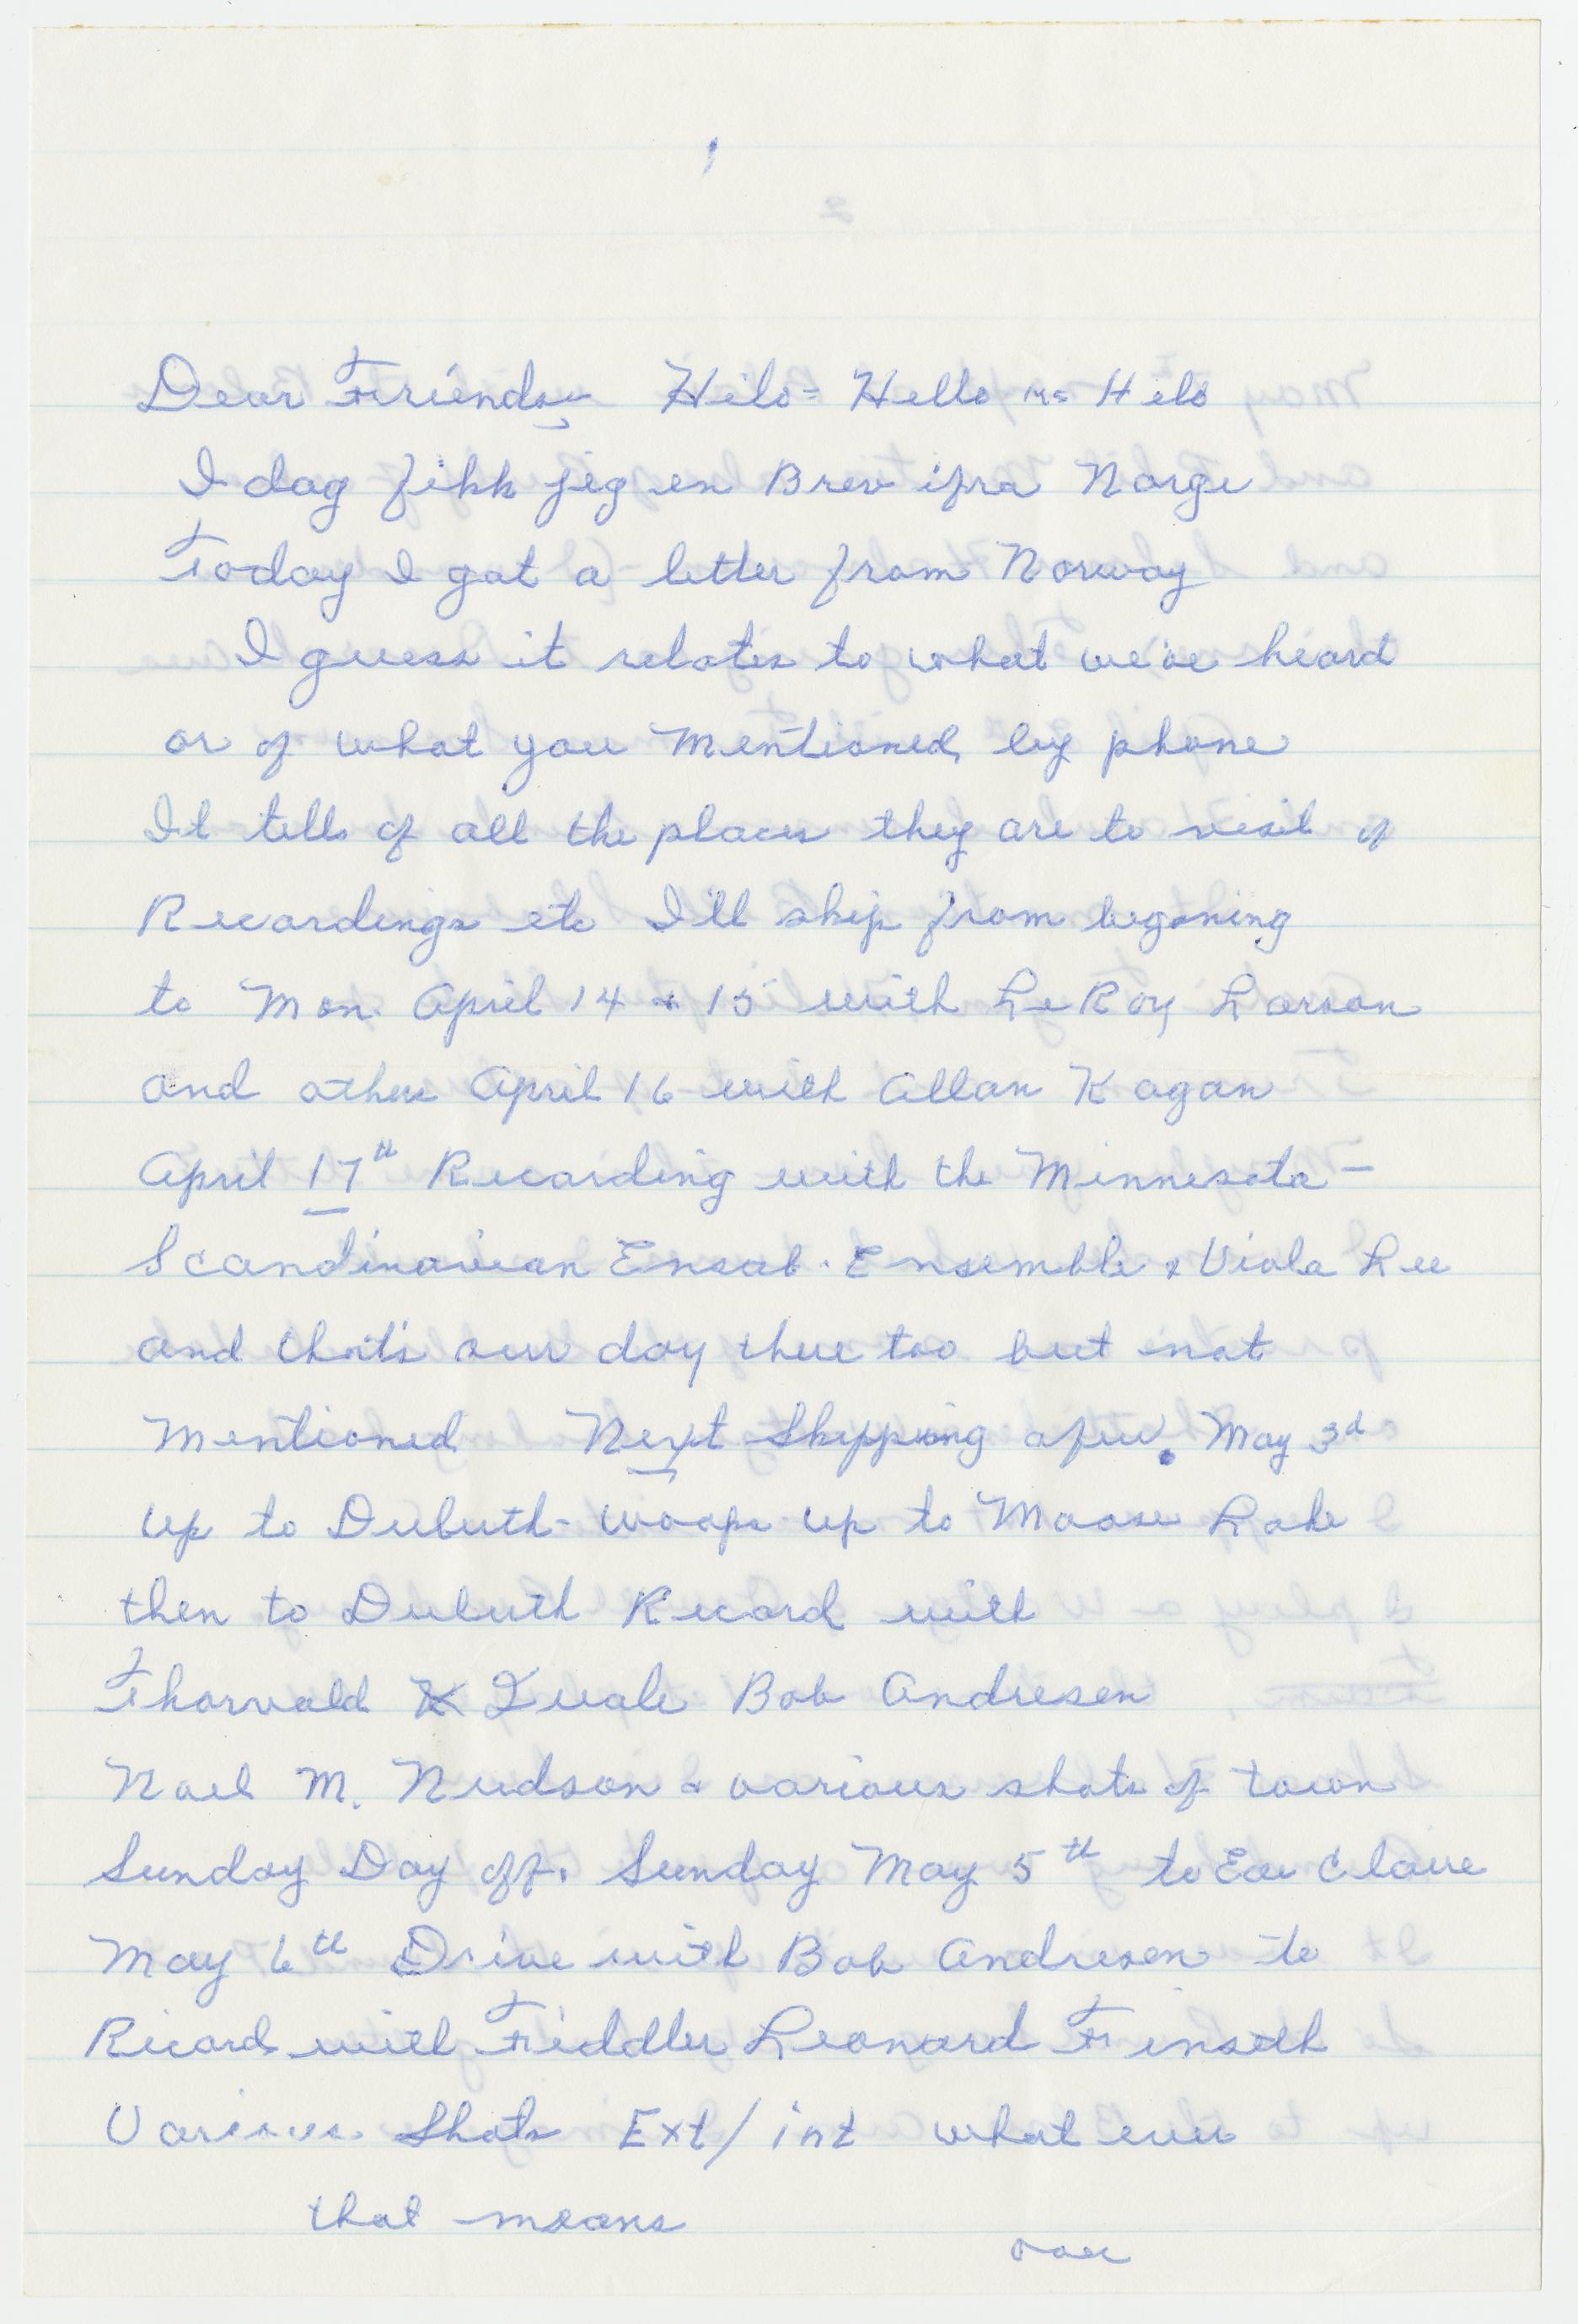 1
Dear Friends, Hilo = Hello Mrs Hilo
I dag fikk jeg en Brev ifra Norge
Today I got a letter from Norway
I guess it relates to what we've heard
or of what you mentioned by phone
It tells of all the places they are to visit of
Recordings etc I'll skip from begoning
to Mon. April 14 & 15 with LeRoy Larson
and others April 16 with Allan Kagan
April 17th Recarding with the Minnesota -
Scandinavian Ensab. Ensemble & Viola Lee
and that's our day there too but not
Mentioned Next Skipping a few. May 3d
up to Duluth - woops up to Moose Lake
then to Duluth Record with
Thorvald Quale Bob Andresen
Noel M. Nudson & various shots of town
Sunday Day off. Sunday May 5th to Eau Claire
May 6th Drive with Bob Andresen to
Ricord with Fiddler Leonard Finseth
Various Shots Ext/int what ever
that means
over